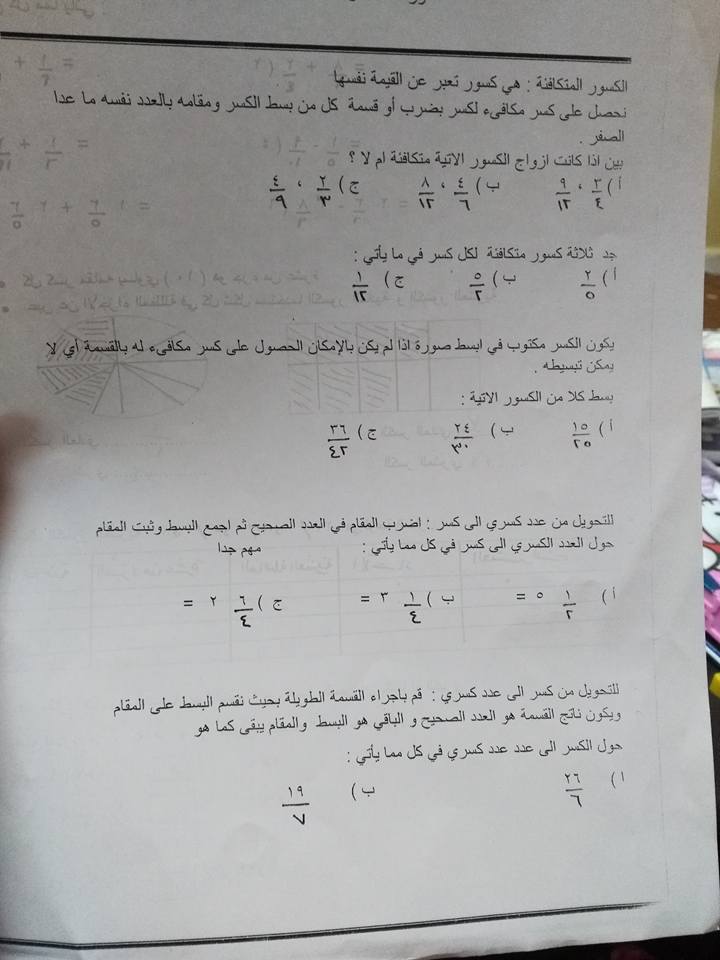 الكسور المتكافئة : هي كسور تعبر عن القيمة نفسها
نحصل على كسر مكافىء لكسر بضرب أو قسمة كل من بسط الكسر ومقامه بالعدد نفسه ما عدا
الصفر .
بين اذا كانت ازواج الكسور الاتية متكافئة ام لا ؟
أ ) ٣/٤ ، ٩/١٢ ب ) ٤/٦ ، ٨/١٢ ج ) ٢/٣ ، ٤/٩
جد ثلاثة كسور متكافئة لكل كسر في ما يأتي :
أ ) ٢/٥ ب ) ٥/٢ ج ) ١/١٢
يكون الكسر مكتوب في ابسط صورة اذا لم يكن بالإمكان الحصول على كسر مكافىء له بالقسمة أي لا
يمكن تبسيطه .
بسط كلا من الكسور الاتية :
أ ) ١٥/٢٥ ب ) ٢٤/٣٠ ج ) ٣٦/٤٢
للتحويل من عدد كسري الى كسر : اضرب المقام في العدد الصحيح ثم اجمع البسط وثبت المقام
حول العدد الكسري الى كسر في كل مما يأتي : مهم جدا
أ ) ١/٢ ٥ = ب ) ١/٤ ٣ = ج ) ٦/٤ ٢ =
للتحويل من كسر الى عدد كسري : قم باجراء القسمة الطويلة بحيث نقسم البسط على المقام
ويكون ناتج القسمة هو العدد الصحيح و الباقي هو البسط والمقام يبقى كما هو
حول الكسر الى عدد عدد كسري في كل مما يأتي :
ا ) ٢٦/٦ ب ) ١٩/٧